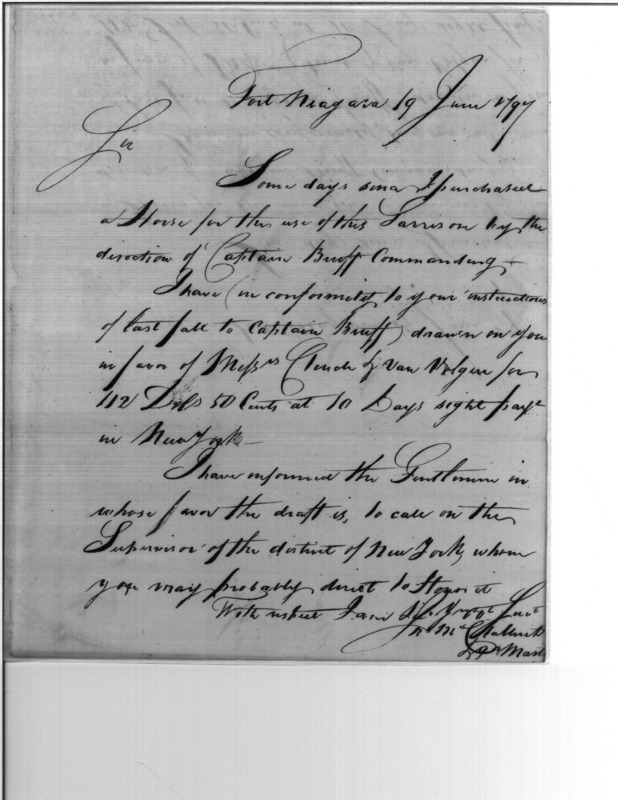 Fort Niagara 19 June 1797
Sir
Some days since I purchased
a Horse for the use of this Garrison by the
direction of Captain Bruff Commanding
I have (in conformity to your instructions
of last fall to Captain Bruff) drawn on you
in favor of Messrs Clench & Van Volgen for
112 Dols 50 Cents at 10 Days sight payt
in New York
I have informed the Gentlemen in
whose favor the draft is, to call on the
Supervisor of the district of New York, whom
you may probably direct to Honor it
With respect I am